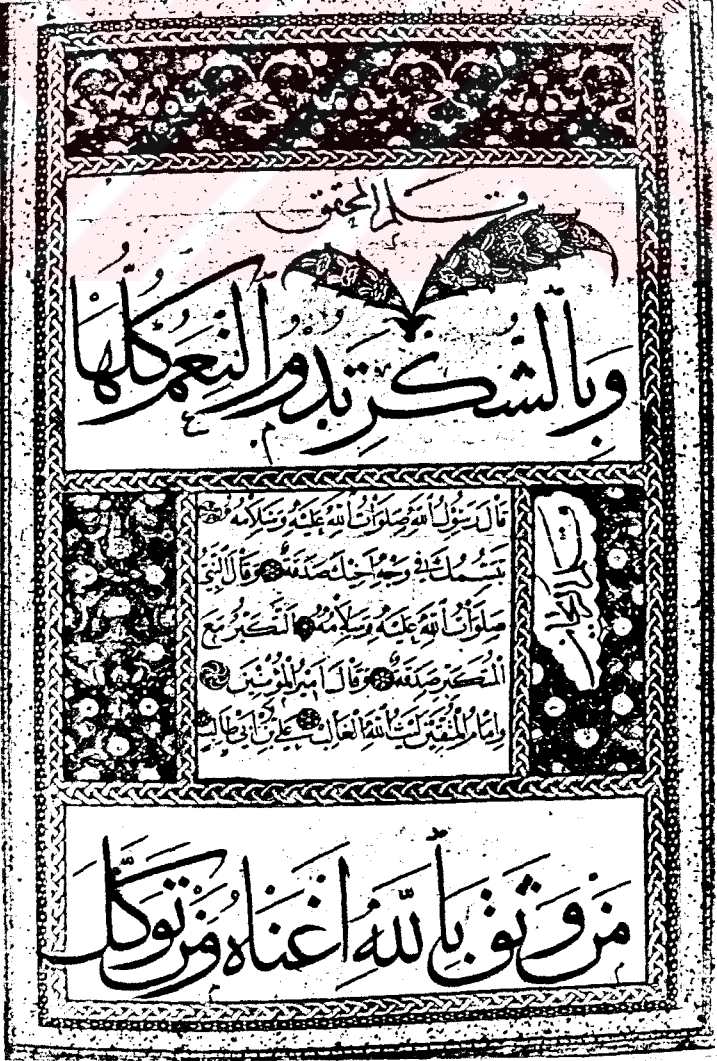 قلم المحقق
وَبِالشُّكْرِ تَدُومُ النِّعَمُ كُلُّهَا
قَالَ رَسُولُ اللهِ صَلَوَاتُ اللهِ عَلَيْهِ وَسَلَامُهُ
تَبَسُّمُكَ فِي وَجْهِ أَخِيكَ صَدَقَةٌ وَقَالَ النَّبِيُّ
صَلَوَاتُ اللهِ عَلَيْهِ وَسَلَامُهُ التَّكَبُّرُ مَعَ
الْمُتَكَبِّرِ صَدَقَةٌ وَقَالَ أَمِيرُ الْمُؤْمِنِينَ
وَإِمَامُ الْمُتَّقِينَ لَيْثُ اللهِ الْغَالِبُ عَلِيُّ بْنُ أَبِي طَالِبٍ
مَنْ وَثِقَ بِاللهِ أَغْنَاهُ وَمَنْ تَوَكَّلَ